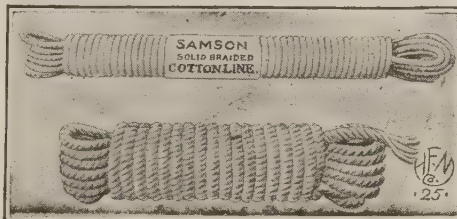 SAMSON
SOLID BRAIDED
COTTON LINE.
HFM
Co.
·25·